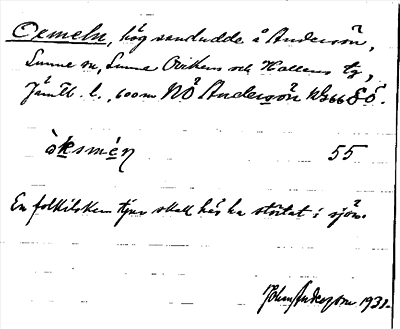 Oxmeln, hög sandudde å Andersön,
Sunne sn, Sunne Ovikens och Hallens tg,
Jämtl. l., 600m NÖ Andersön
òksmén 55
En folkilsken tjur skall här ha störtat i sjön.
John Anderson 1931.